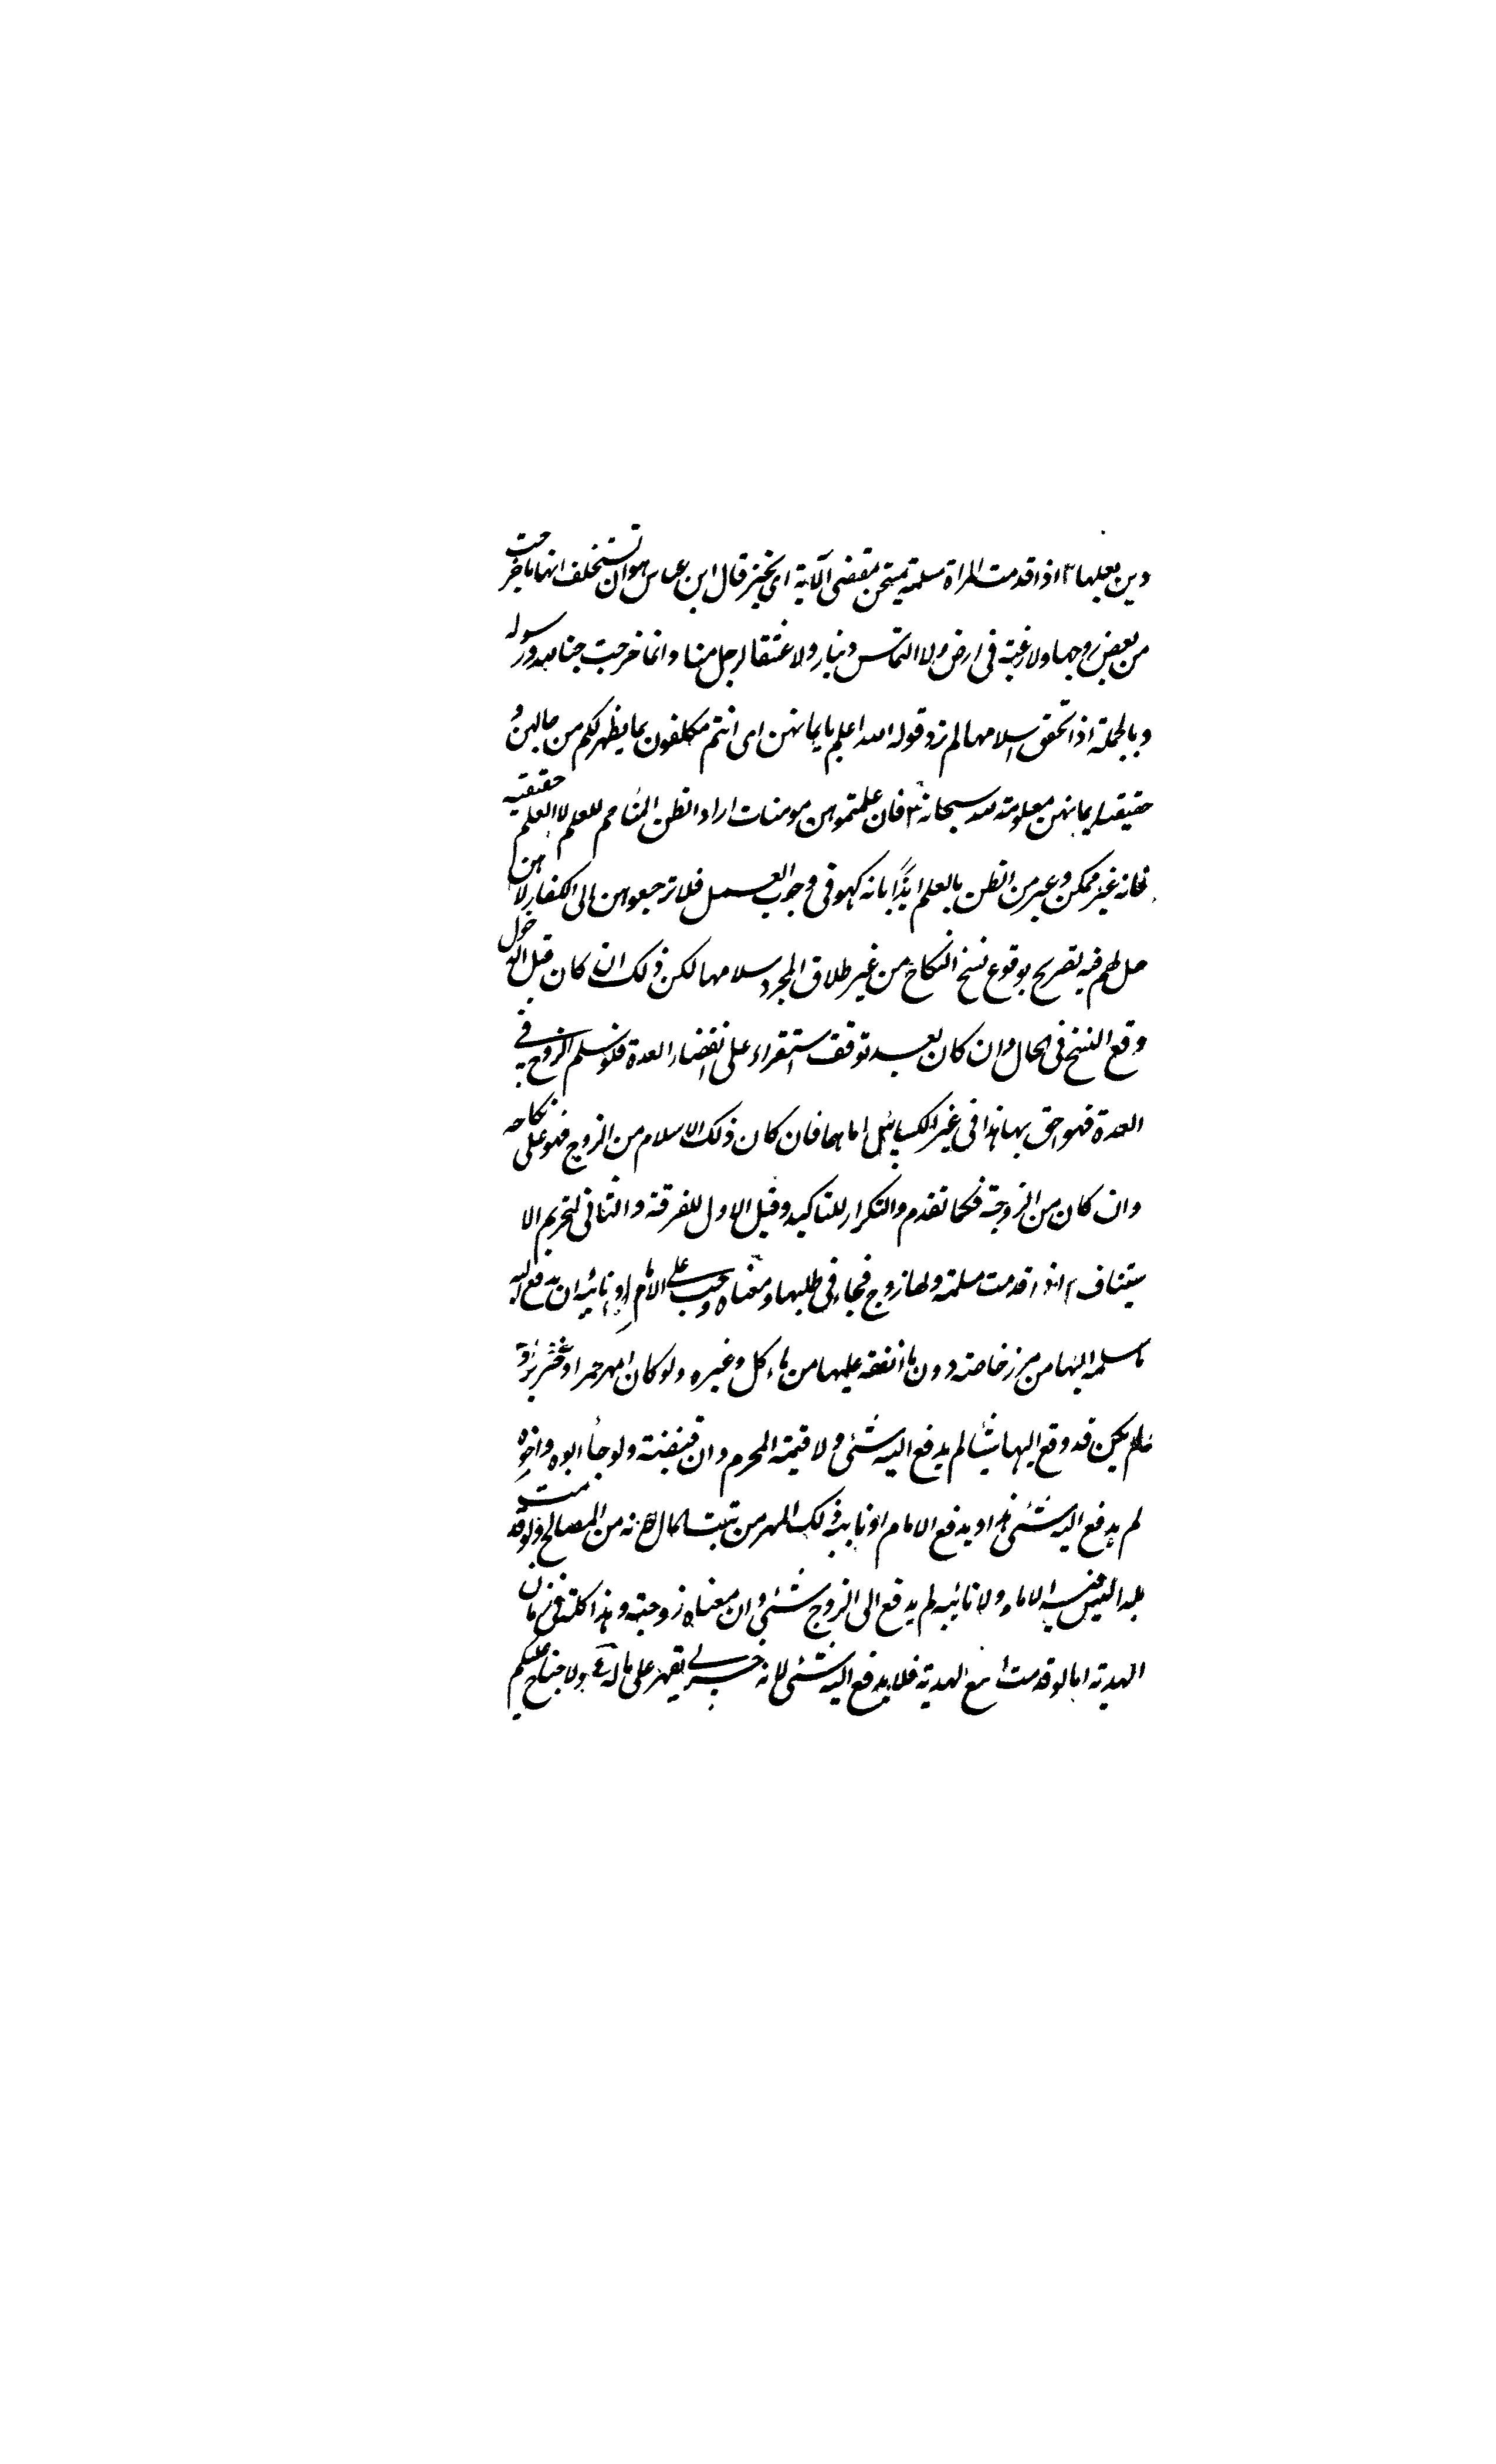 دين بعلها ٢ اذا قدمت المراة مسلمة يمتحن بمقتضى الآية اى يختبر قال ابن عباس هو ان تستحلف انها ما خرجت
من بعض زوجها ولا رغبة فى ارض ولا التماس دينار ولا عشقا لرجل منا وانما خرجت حبا لله ورسوله
وبالجملة اذا تحقق اسلامها لم ترد قوله الله اعلم بايمانهن اى انتم مكلفون بما يظهر لكم من حالهن و
حقيقة ايمانهن معلومة لله سبحانه ٣ فان علمتموهن مومنات اراد الظن المتاخم للعلم لا العلم حقيقة
فانه غير ممكن وعبر من الظن بالعلم ايذانا بانه كهو فى وجوب العمل فلا ترجعوهن الى الكفار لا هن
حل لهم فيه تصريح بوقوع فسخ النكاح من غير طلاق لمجرد اسلامها لكن ذلك ان كان قبل الدخول
وقع الفسخ فى الحال وان كان بعده توقف استقراره على انقضاء العدة فلو اسلم الزوج فى
العدة فهو احق بها هذا فى غير الكتابيين اما هما فان كان ذلك الاسلام من الزوج فهو على نكاحه
وان كان من الزوجة فكما تقدم والتكرار للتاكيد وقيل الاول للفرقة والثانى لتحريم الا
ستيناف ٢ اذا قدمت مسلمة ولها زوج فجاء فى طلبها ومنعناه وجب على الامام او نائبه ان يدفع اليه
ما سلمه اليها من مهر خاصة دون ما انفقه عليها من ماكل وغيره ولو كان المهر خمرا او خنزيرا او
لم يكن قد دفع اليها شيئا لم يدفع اليه شئى ولا قيمة المحرم وان قبضته ولو جاء ابوه واخوه
لم يدفع اليه شئى هذا ويدفع الامام او نائبه ذلك المهر من بيت المال لانه من المصالح ولو قدمت
بلدا ليس فيه الامام ولا نائبه لم يدفع الى الزوج شئى وان منعناه زوجته وهذا كله فى زمان
الهدنة اما لو قدمت مع الهدنة فلا يدفع اليه شئى لانه حربى يقهر على ماله ٤ ولا جناح عليكم